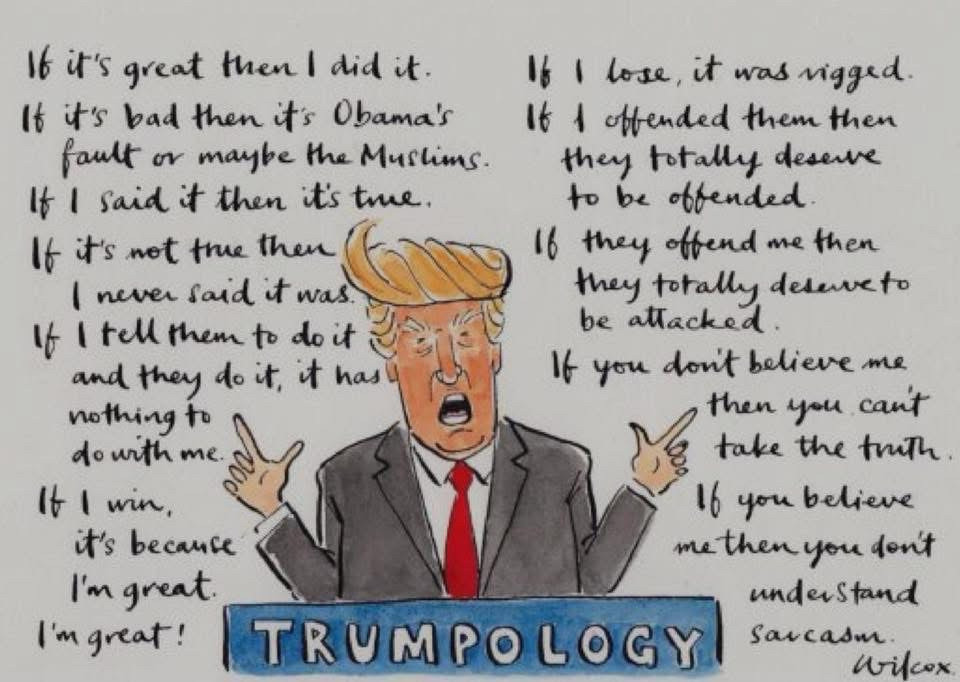 If it's great then I did it.
If it's bad then it's Obama's
fault or maybe the Muslims.
If I said it then it's true.
If it's not true then
I never said it was.
If I tell them to do it
and they do it, it has
nothing to
do with me.
If I win,
it's because
I'm great.
I'm great!
If I lose, it was rigged.
If I offended them then
they totally deserve
to be offended.
If they offend me then
they totally deserve to
be attacked.
If you don't believe me
then you can't
take the truth.
If you believe
me then you don't
understand
sarcasm.
TRUMPOLOGY
Wilcox.